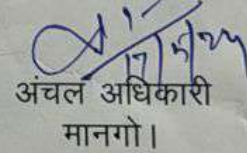 17/5/24
अंचल अधिकारी
मानगो।